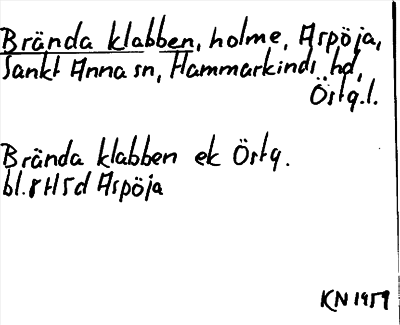 Brända klabben, holme, Aspöja,
Sankt Anna sn, Hammarkinds hd,
Östg.l.
Brända klabben ek Östg.
bl. 8H5d Aspöja
KN 1959